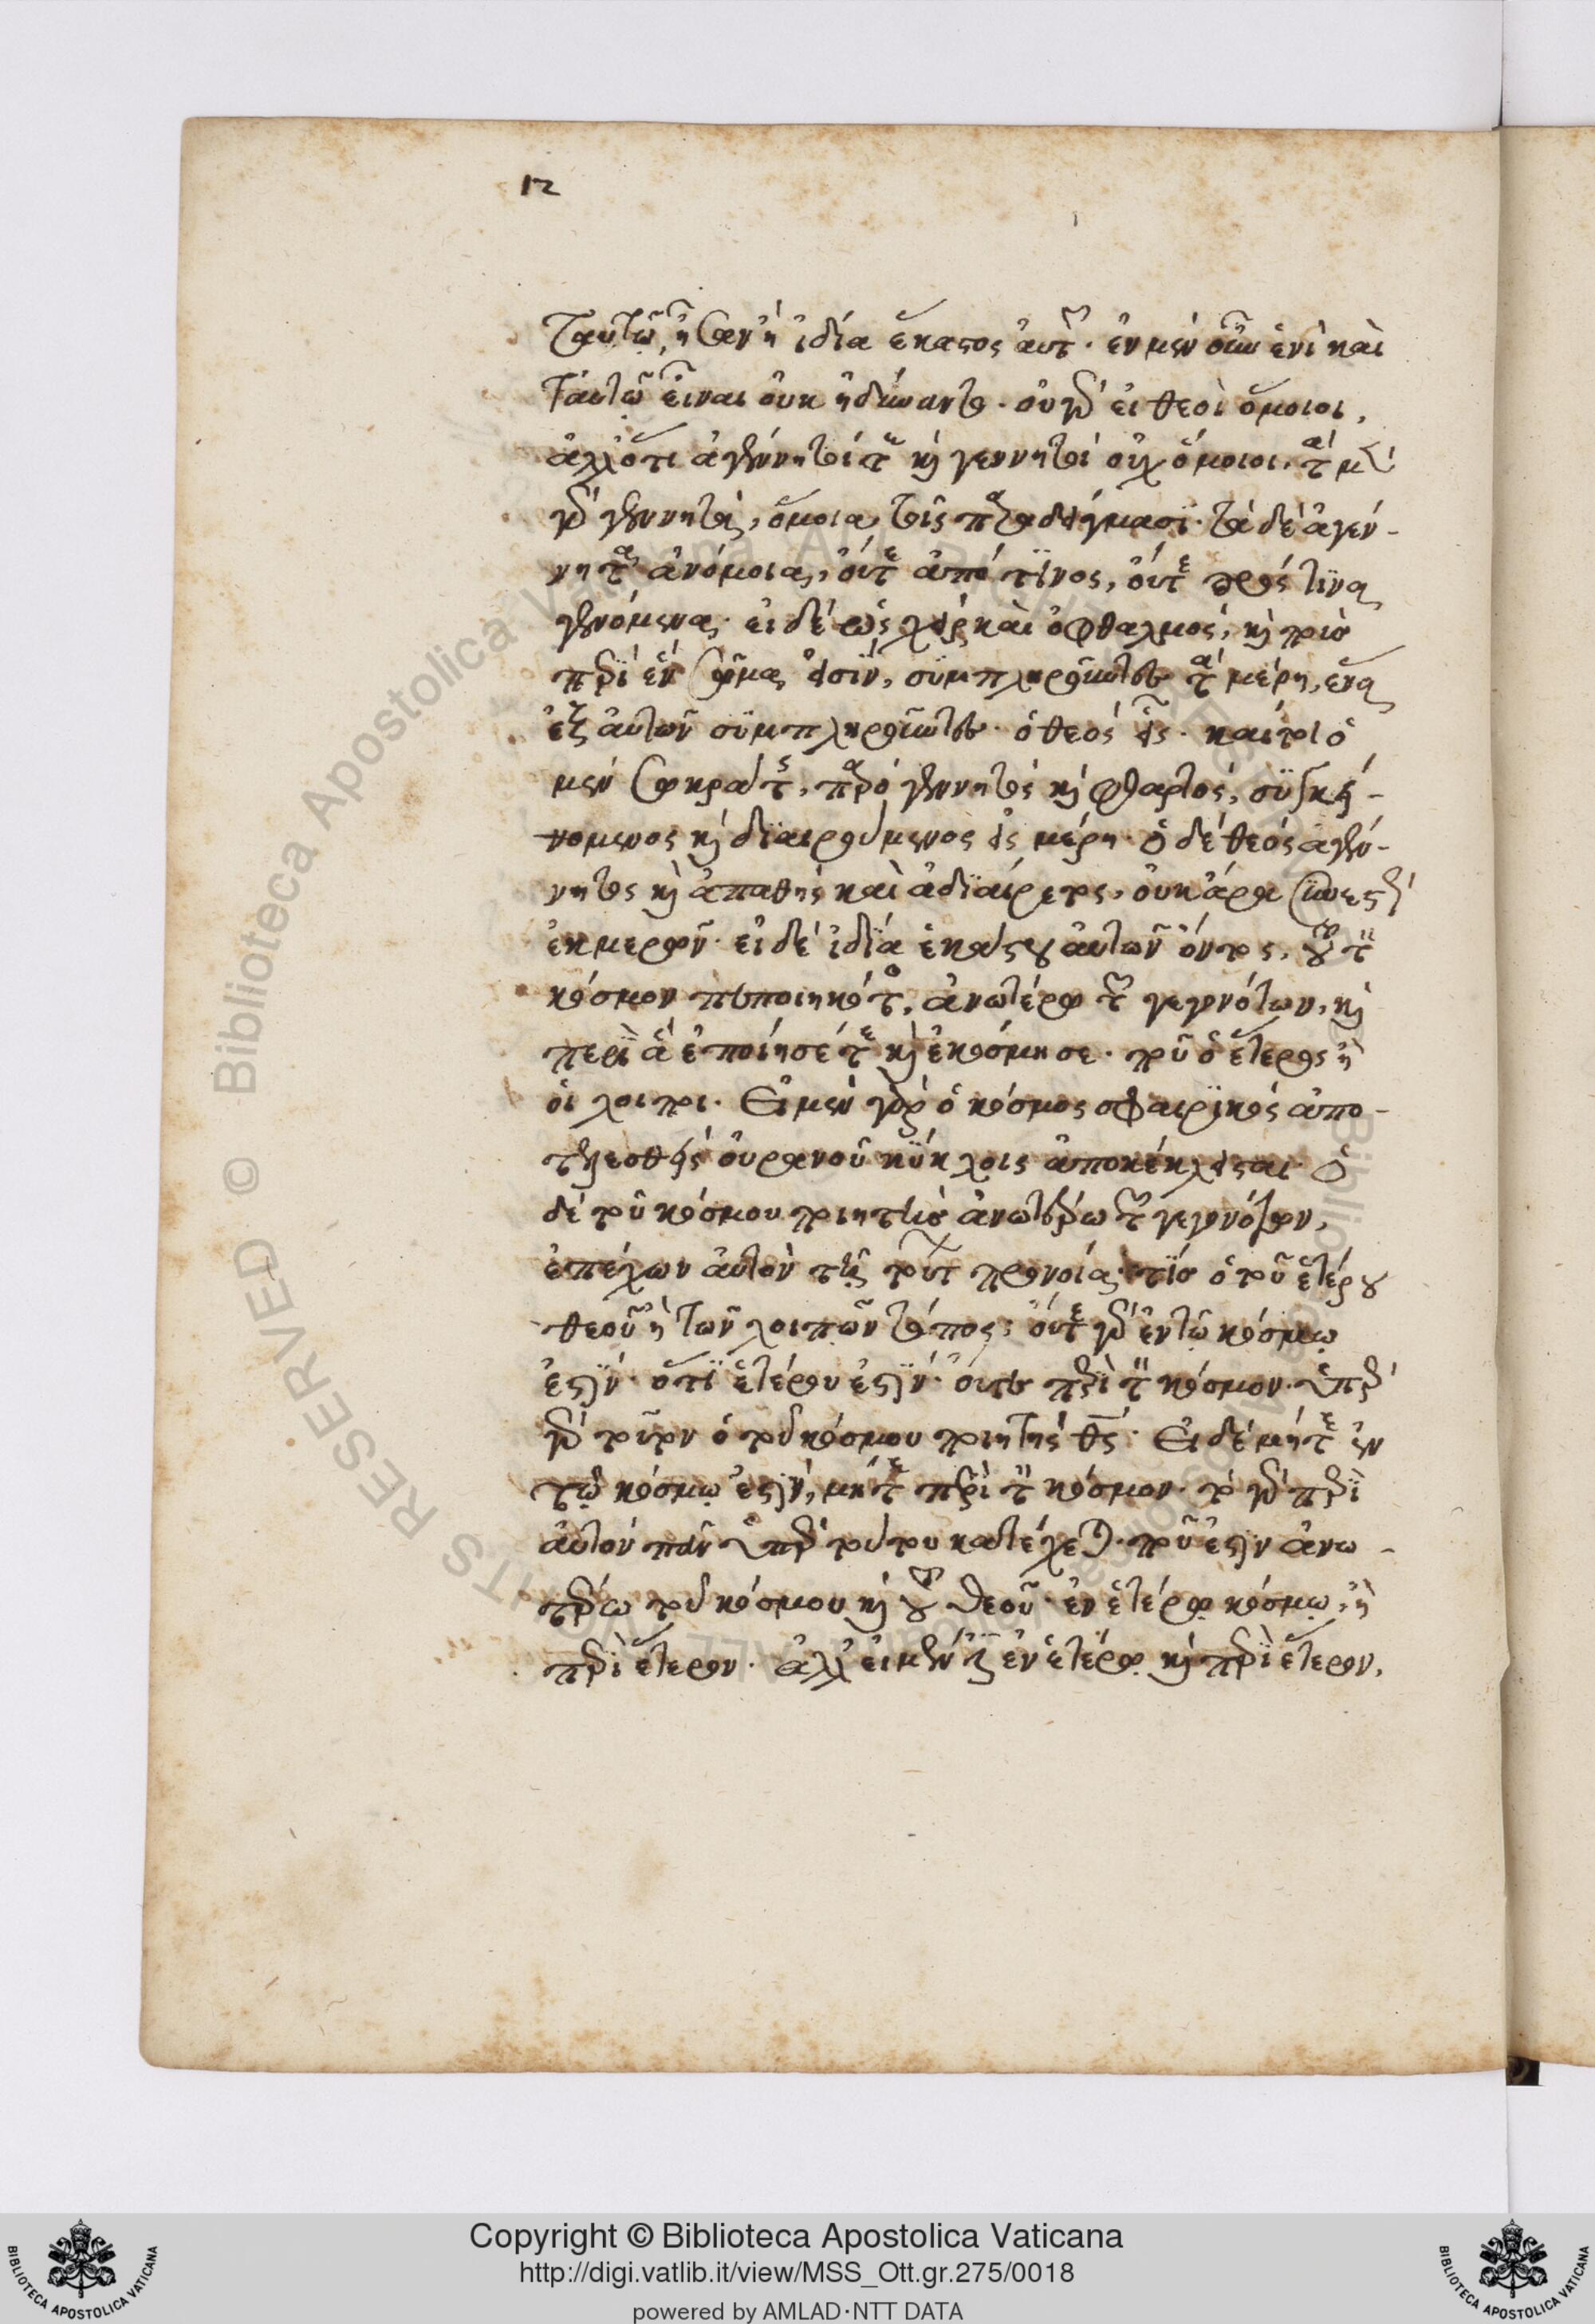 12
ταυτῷ ἦσαν ἢ ἰδίᾳ ἕκαστος αὐτῶν. ἐν μὲν οὖν ἑνὶ καὶ
ταυτῷ εἶναι οὐκ ἠδύναντο. οὐ γὰρ εἰ θεοὶ ὅμοιοι,
ἀλλ' ὅτι ἀγέννητοί τε καὶ γεννητοὶ οὐχ ὅμοιοι. τὰ μὲν
γὰρ γεννητὰ, ὅμοια τοῖς παραδείγμασι. τὰ δὲ ἀγέν-
νητα ἀνόμοια, οὔτε ἀπό τινος, οὔτε πρός τινα
γενόμενα. εἰ δὲ ὡς χεὶρ καὶ ὀφθαλμὸς, καὶ ποὺς
περὶ ἓν σῶμα εἰσὶν, συμπληροῦντα τὰ μέρη, ἕνα
ἐξ αὐτῶν συμπληροῦντα. ὁ θεὸς εἷς. καίτοι ὁ
μὲν Σωκράτης, παρὸ γεννητὸς καὶ φθαρτὸς, συγκεί-
νομενος καὶ διαιρούμενος εἰς μέρη. ὁ δὲ θεὸς ἀγέν-
νητος καὶ ἀπαθὴς καὶ ἀδιαίρετος, οὐκ ἄρα συνεστὼς
ἐκ μερῶν. εἰ δὲ ἰδίᾳ ἑκάστου αὐτῶν ὄντος, τοῦ τὸν
κόσμον πεποιηκότος, ἀνωτέρω τῶν γεγονότων, καὶ
περὶ ἃ ἐποίησέ τε καὶ ἐκόσμησε. ποῦ ὁ ἕτερος ἢ
οἱ λοιποί. Εἰ μὲν γὰρ ὁ κόσμος σφαιρικὸς ἀπο-
τελεσθεὶς οὐρανοῦ κύκλοις ἀποκέκλεισται. ὁ
δὲ τοῦ κόσμου ποιητὴς ἀνωτέρω τῶν γεγονότων,
ἐπέχων αὐτὸν τῇ τούτων προνοίᾳ. τίς ὁ τοῦ ἑτέρου
θεοῦ ἢ τῶν λοιπῶν τόπος; οὔτε γὰρ ἐν τῷ κόσμῳ
ἐστίν. ὅτι ἑτέρου ἐστίν. οὔτε περὶ τὸν κόσμον. ὑπὲρ
γὰρ τοῦτον ὁ τοῦ κόσμου ποιητὴς θς. Εἰ δὲ μήτε ἐν
τῷ κόσμῳ ἐστὶν, μήτε περὶ τὸν κόσμον. τὸ γὰρ περὶ
αὐτὸν πᾶν ὑπὸ τούτου κατέχεται. ποῦ ἐστιν ἀνω-
τέρω τοῦ κόσμου καὶ τοῦ θεοῦ. ἐν ἑτέρῳ κόσμῳ, ἢ
περὶ ἕτερον. ἀλλ' εἰ μέν ἐστιν ἐν ἑτέρῳ καὶ περὶ ἕτερον,
Copyright © Biblioteca Apostolica Vaticana
http://digi.vatlib.it/view/MSS_Ott.gr.275/0018
powered by AMLAD·NTT DATA